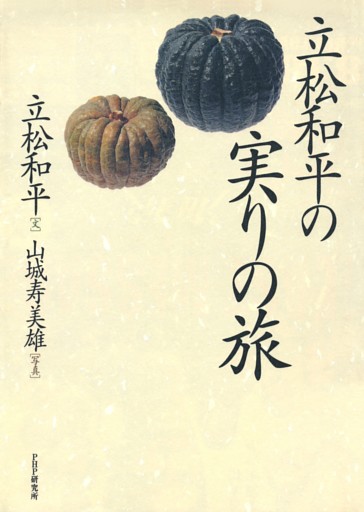 立松和平の
実りの旅
立松和平[文]
山城寿美雄[写真]
PHP研究所